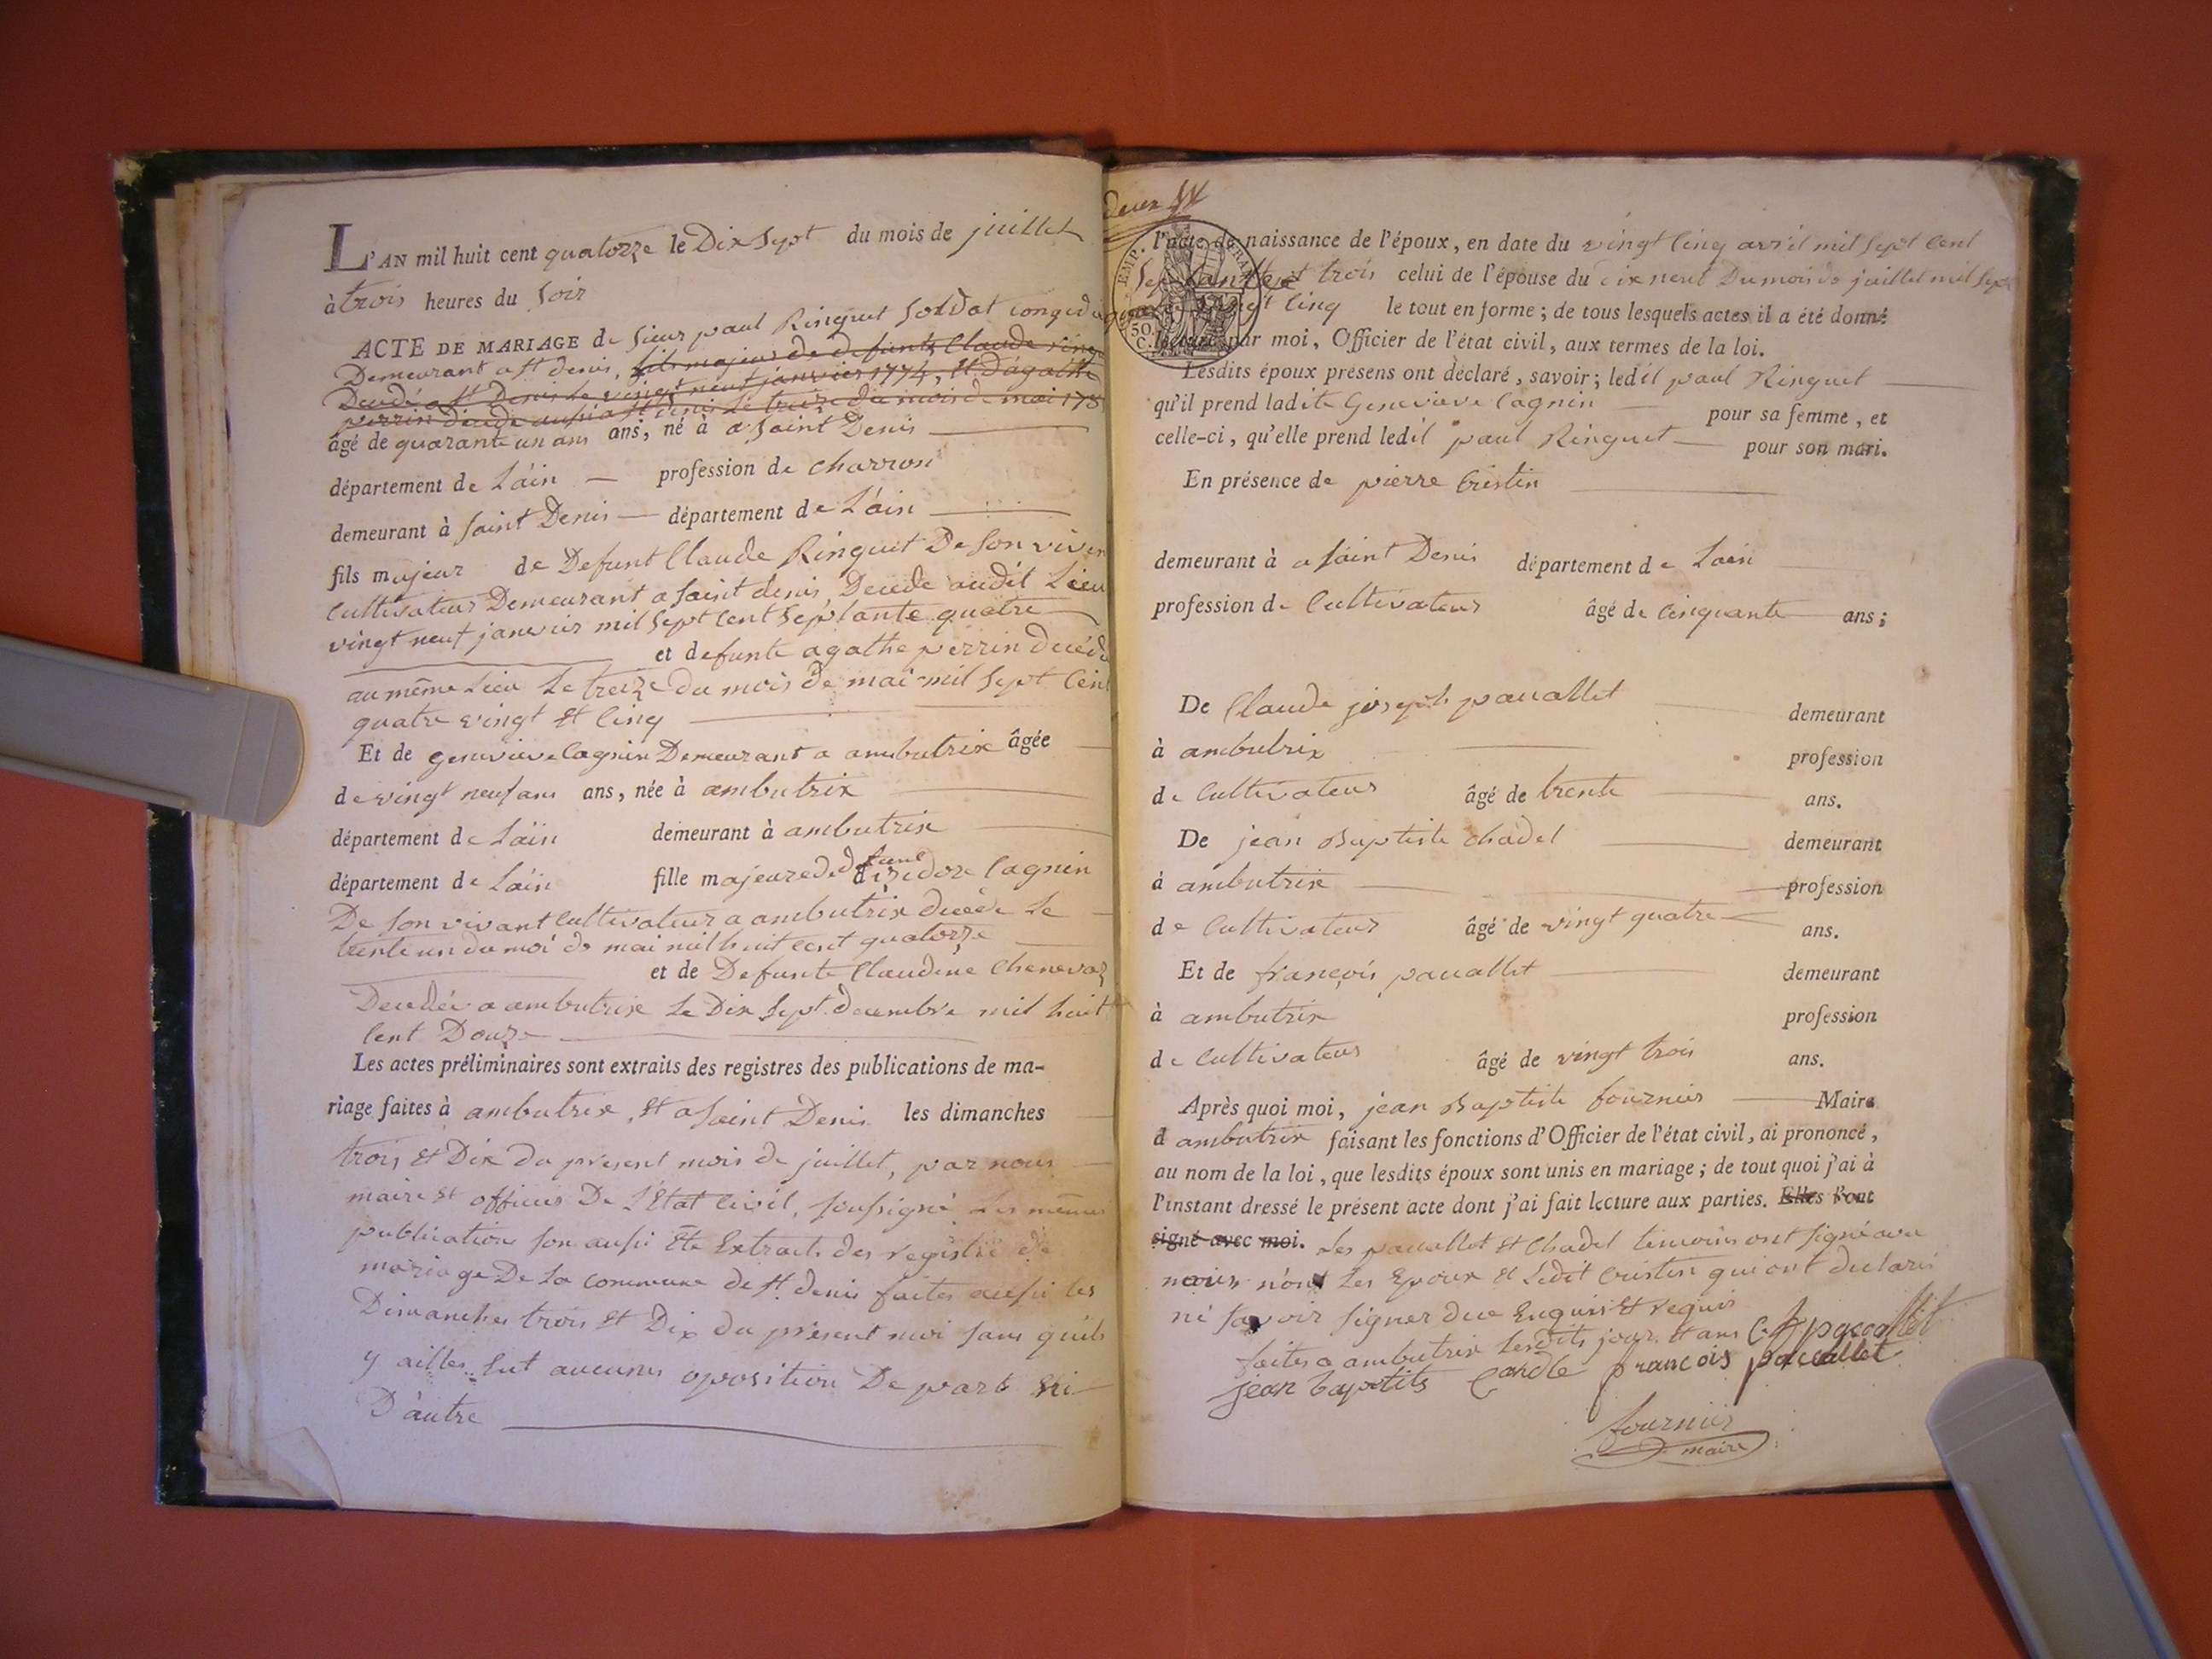 L'AN mil huit cent quatorze le Dix Sept du mois de juillet
à trois heures du Soir
ACTE DE MARIAGE de Sieur paul Ringuet Soldat congedié
Demeurant a St denis, fils majeur de defunts Claude ringu
Decedé a St Denis le vingt neuf janvier 1774, Et d'agathe
perrin décédé aussi a St denis le treize du mois de mai 178
âgé de quarante un ans ans, né à a Saint Denis
département de L'ain profession de charron
demeurant à Saint Denis département de L'ain
fils majeur de Defunt Claude Ringuet De Son vivan
Cultivateur Demeurant a Saint denis, Decede audit Lieu
vingt neuf janvier mil Sept Cent Septante quatre
et defunte agathe perrin Décéde
au même Lieu Le treize du mois de mai mil Sept Cent
quatre vingt Et Cinq
Et de genevieve Cagnin Demeurant a ambutrix âgée
de vingt neuf ans ans, née à ambutrix
département de Lain demeurant à ambutrix
département de Lain fille majeure de defunt isidore Cagnin
De Son vivant Cultivateur a ambutrix décédé Le
trente un du moi de mai mil huit cent quatorze
et de Defunte Claudine Chenevaz
Decedée a ambutrix Le Dix Sept decembre mil huit
Cent Douze
Les actes préliminaires sont extraits des registres des publications de ma-
riage faites à ambutrix, Et a Saint Denis les dimanches
trois Et Dix du present mois de juillet, par nous
maire Et officier De L'Etat Civil, Soussigné Les mêmes
publication Son aussi Ete Extraits des registre de
mariage De La Commune de St. denis faites aussi les
Dimanches trois Et Dix du present moi Sans qu'ils
y ailles Eut aucunes oposition De part ni
D'autre
deux
l'acte de naissance de l'époux, en date du vingt Cinq avril mil Sept Cent
Septante et trois celui de l'épouse du dix neuf Du mois de juillet mil Sept
quatre vingt Cinq le tout en forme; de tous lesquels actes il a été donné
lecture par moi, Officier de l'état civil, aux termes de la loi.
Lesdits époux présens ont déclaré, savoir; ledit paul Ringuet
qu'il prend ladite Genevieve Cagnin pour sa femme, et
celle-ci, qu'elle prend ledit paul Ringuet pour son mari.
En présence de pierre Cristin
demeurant à a Saint Denis département de Lain
profession de Cultivateur âgé de Cinquante ans;
De Claude joseph pacallet demeurant
à ambutrix profession
de Cultivateur âgé de trente ans.
De jean Baptiste Chadel demeurant
à ambutrix profession
de Cultivateur âgé de vingt quatre ans.
Et de françois pacallet demeurant
à ambutrix profession
de Cultivateur âgé de vingt trois ans.
Après quoi moi, jean Baptiste fournier Maire
d ambutrix faisant les fonctions d'Officier de l'état civil, ai prononcé,
au nom de la loi, que lesdits époux sont unis en mariage; de tout quoi j'ai à
l'instant dressé le présent acte dont j'ai fait lecture aux parties. Elles l'ont
signé avec moi. Les pacallet Et Chadel temoins ont Signé avec
nous non Les Epoux Et Ledit Cristin qui ont declaré
ni Savoir Signer due Enquis Et requis
faites a ambutrix Lesdits jour Et ans C J paccallet
jean baptits françois paccallet
fournier
maire